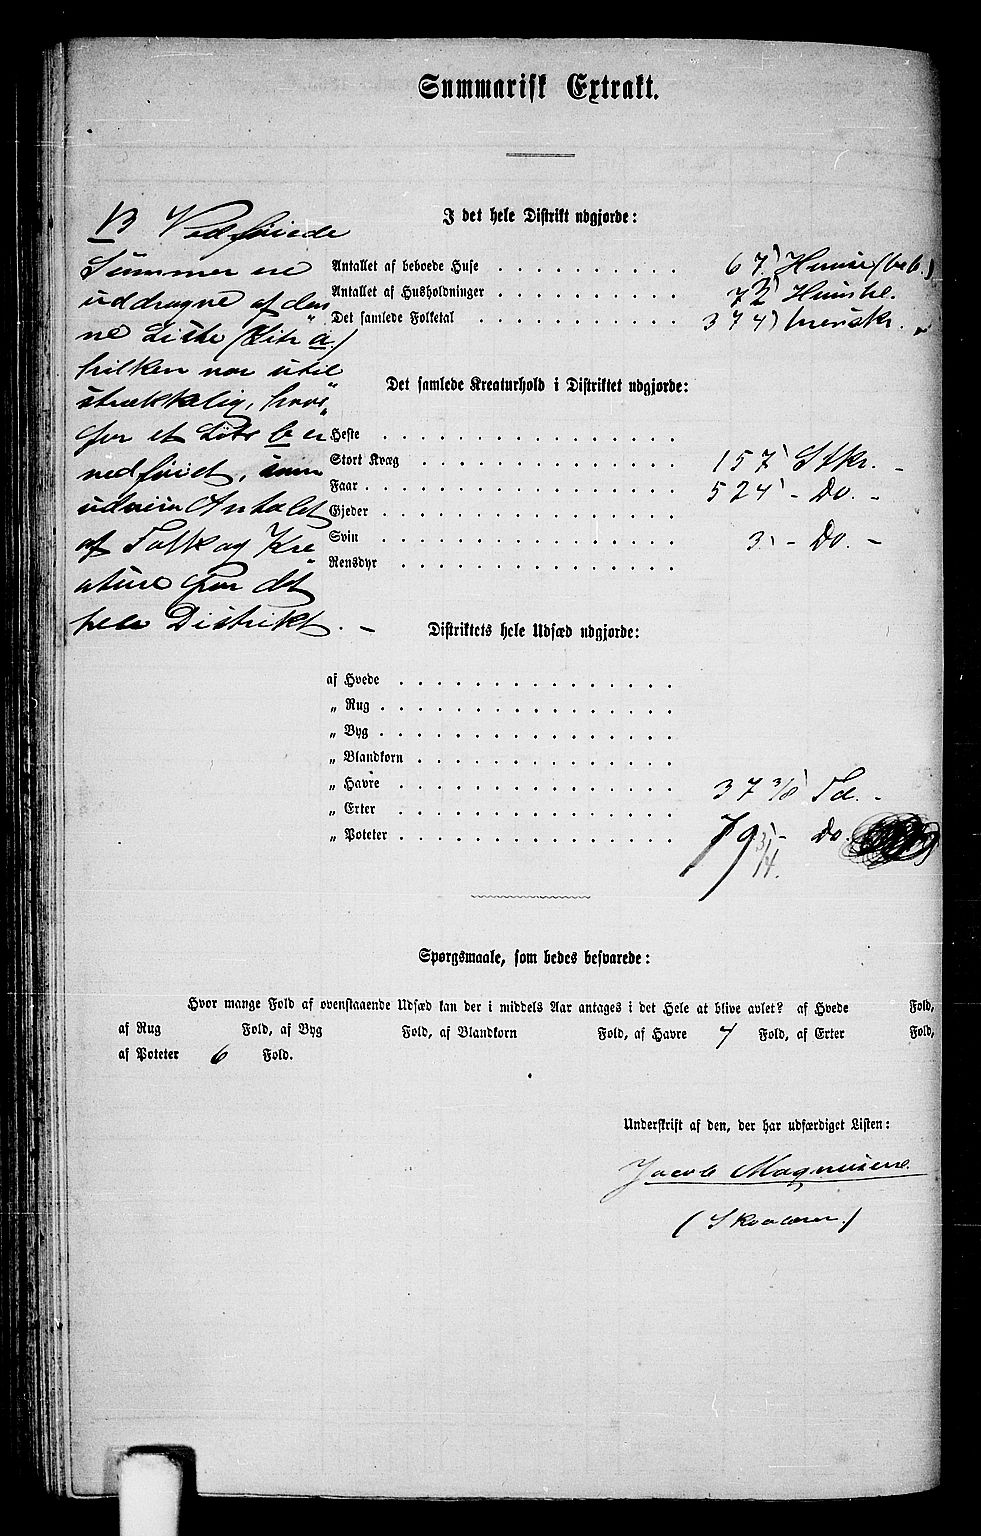 Summarisk Extrakt.
I det hele Distrikt udgjorde:
Antallet af beboede Huse 67 Huuse (beb.)
Antallet af Husholdninger 72 Huushl.
Det samlede Folketal 374 Mensk.
NB Vedføiede
Summer ere
uddragne af den
ne Liste (Litr a.)
hvilken var util
strækkelig, hvor
for et Litr b er
vedføiet, som
udvise Antalet
af Folk og Kre
ature for det
hele Distrikt. -
Det samlede Kreaturhold i Distriktet udgjorde:
Heste
Stort Kvæg 157 Stkr. -
Faar 524 - Do. -
Gjeder
Svin 3 - Do. -
Rensdyr
Distriktets hele Udsæd udgjorde:
af Hvede
„ Rug
„ Byg
„ Blandkorn
„ Havre 37 3/8 Td. -
„ Erter
„ Poteter 79 3/4 - Do.
Spørgsmaale, som bedes besvarede:
Hvor mange Fold af ovenstaaende Udsæd kan der i middels Aar antages i det Hele at blive avlet? af Hvede Fold,
af Rug Fold, af Byg Fold, af Blandkorn Fold, af Havre 4 Fold, af Erter Fold,
af Poteter 6 Fold.
Underskrift af den, der har udfærdiget Listen:
Jacob Magnusen